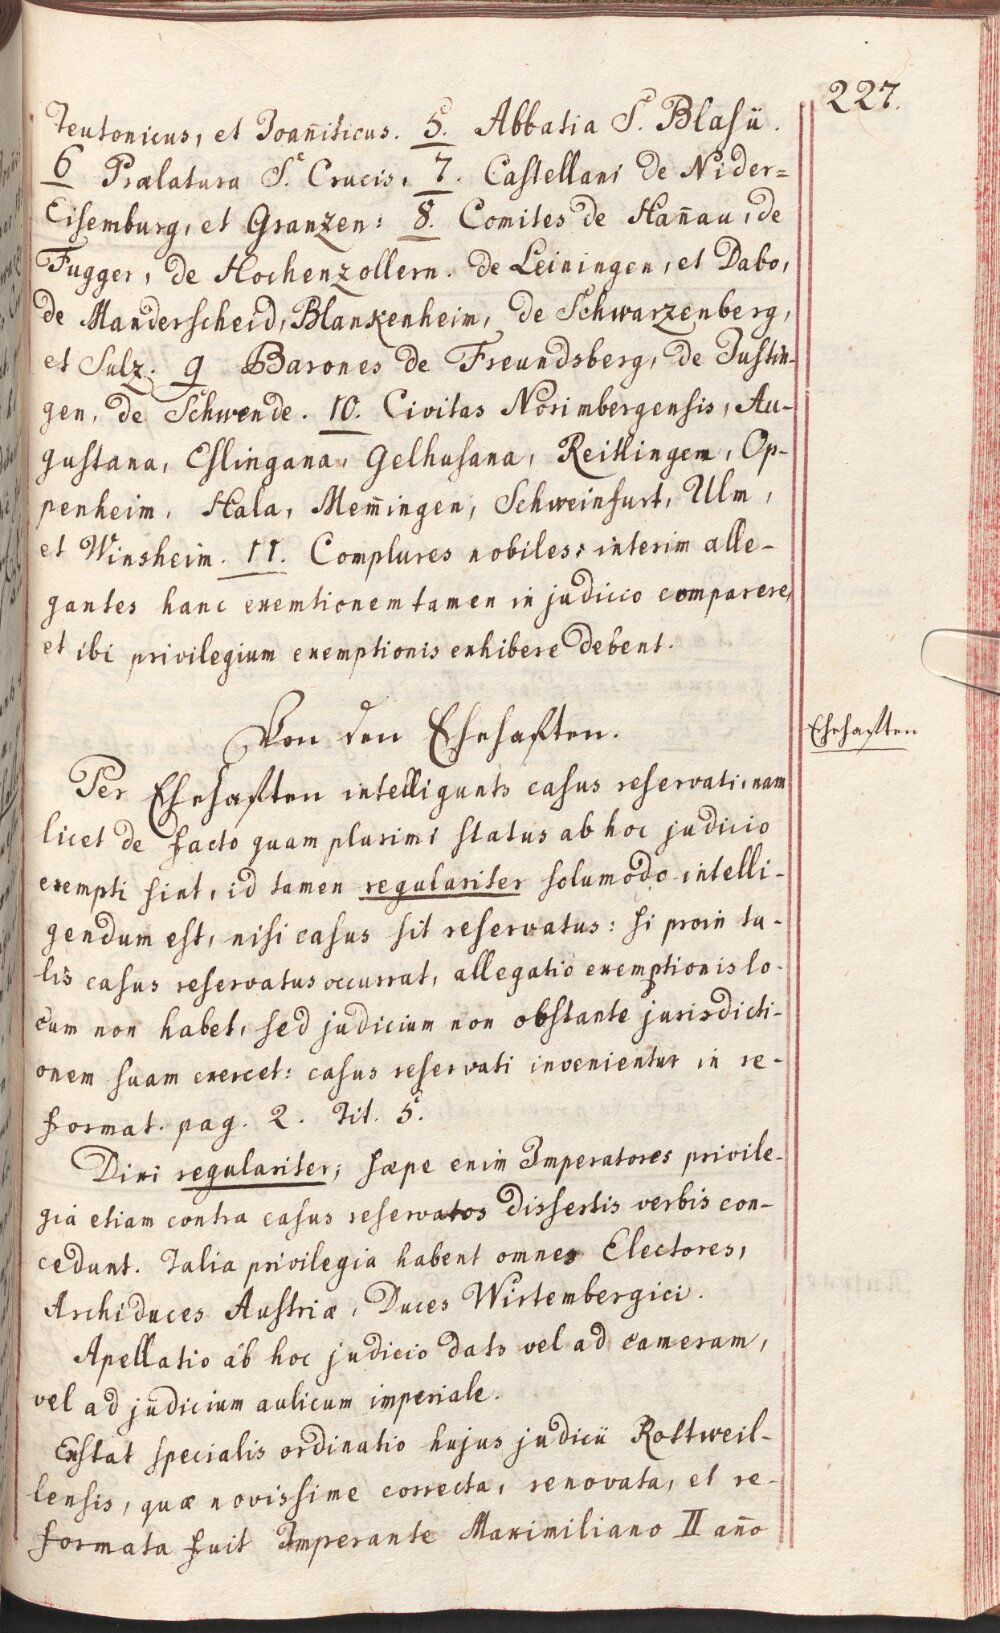 227.
Teutonicus, et Joan̄iticus. 5. Abbatia S. Blasii.
6 Prælatura S. Crucis, 7. Castellani de Nider=
Eisemburg, et Granzen: 8. Comites de Han̄au, de
Fugger, de Hochenzollern. de Leiningen, et Dabo,
de Manderscheid, Blankenheim, de Schwarzenberg,
et Sulz. 9 Barones de Freundsberg, de Justin-
gen, de Schwende. 10. Civitas Norimbergensis, Au-
gustana, Eslingana, Gelhusana, Reitlingem, Op-
penheim, Hala, Mem̄ingen, Schweinfurt, Ulm,
et Winsheim. 11. Complures nobiles, interim alle-
gantes hanc exemtionem tamen in judicio comparere,
et ibi privilegium exemptionis exhibere debent.
Von den Ehehaften.
Ehehaften
Per Ehehaften intelligunts casus reservati, nam
licet de facto quam plurimi status ab hoc judicio
exempti sint, id tamen regulariter solumodo intelli-
gendum est, nisi casus sit reservatus: si proin ta-
lis casus reservatus occurrat, allegatio exemptionis lo-
cum non habet, sed judicium non obstante jurisdicti-
onem suam exercet: casus reservati invenientur in re-
format. pag. 2. Tit. 5.
Dixi regulariter, sæpe enim Imperatores privile-
gia etiam contra casus reservatos dissertis verbis con-
cedunt. Talia privilegia habent omnes Electores,
Archiduces Austriæ, Duces Wirtembergici.
Apellatio ab hoc judicio dats vel ad cameram,
vel ad judicium aulicum imperiale.
Exstat specialis ordinatio hujus judicii Rottweil-
lensis, quæ novissime correcta, renovata, et re-
formata fuit Imperante Maximiliano II an̄o